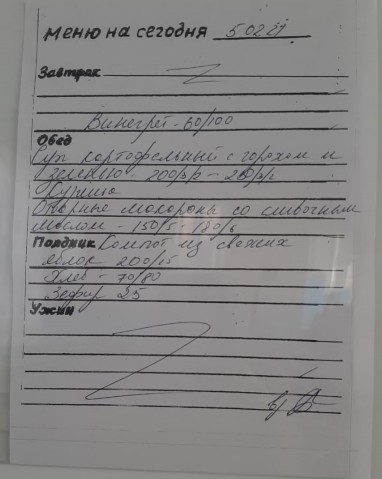 Меню на сегодня 5 02 21
Завтрак
Винегрет - 60/100
Обед
Суп картофельный с горохом и
зеленью - 200/
Отварные макароны со сливочным
маслом - 150/5 - 180/
Полдник Компот из свежих
яблок 200/15
Хлеб - 70/80
Зефир 25
Ужин